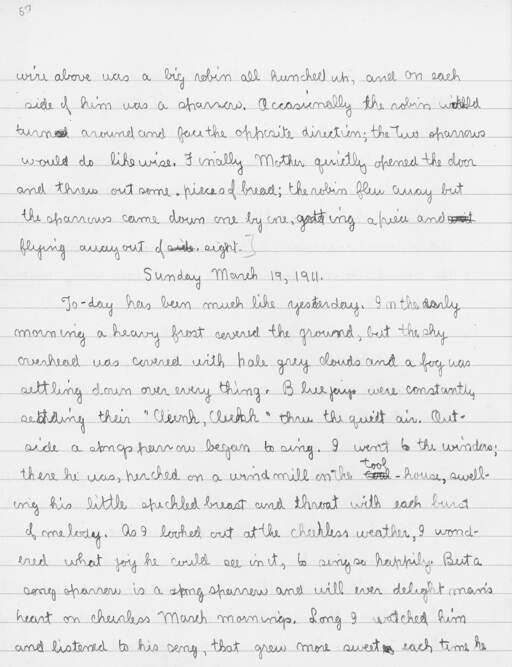 57
wire above was a big robin all hunched up, and on each
side of him was a sparrow. Occasionally the robin would
turn around and face the opposite direction; the two sparrows
would do likewise. Finally Mother quietly opened the door
and threw out some pieces of bread; the robin flew away but
the sparrows came down one by one, getting a piece and
flying away out of sight.]
Sunday March 19, 1911.
To-day has been much like yesterday. In the early
morning a heavy frost covered the ground, but the sky
overhead was covered with pale grey clouds and a fog was
settling down over every thing. Blue jays were constantly
sending their "Clunk, " thru the quiet air. Out-
side a song sparrow began to sing. I went to the window;
there he was, perched on a wind mill on the tool-house, swell-
ing his little speckled breast and throat with each burst
of melody. As I looked out at the cheerless weather, I wond-
ered what joy he could see in it, to sing so happily. But a
song sparrow is a song sparrow and will ever delight man's
heart on cheerless March mornings. Long I watched him
and listened to his song, that grew more sweet each time he